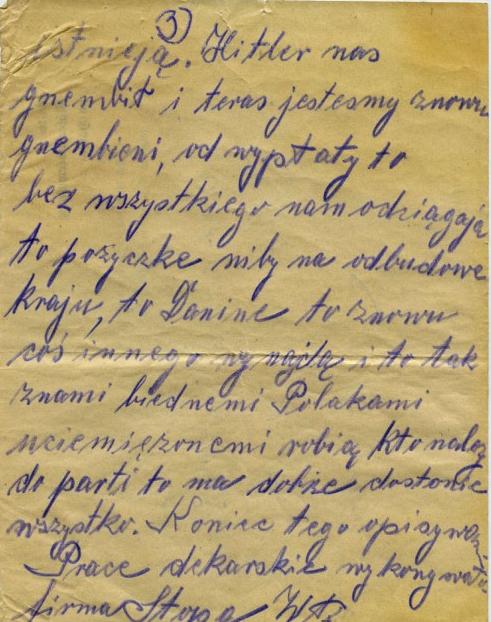 3)
istnieją. Hitler nas
gnembił i teras jestesmy znowu
gnembieni, od wypłaty to
bez wszystkiego nam odciągają
to pożyczke niby na odbudowe
kraju, to Danine to znowu
coś innego wynajdą i to tak
znami biednemi Polakami
uciemiężonemi robią kto należy
do parti to ma dobże dostanie
wszystko. Koniec tego
Prace dekarskie wykonywała
firma